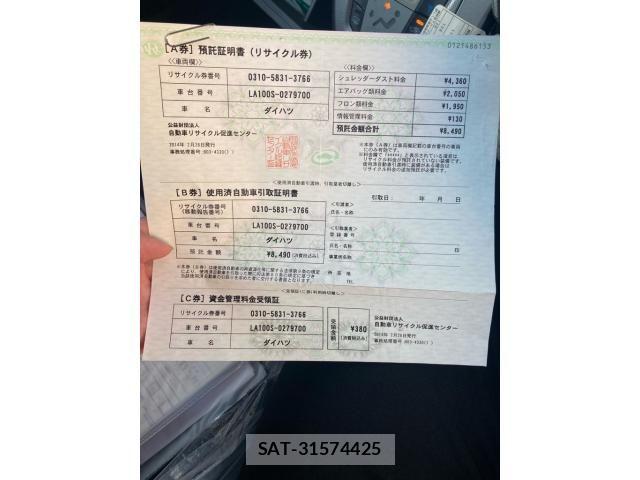 0121486133
[A券] 預託証明書 (リサイクル券)
<<車両欄>>
リサイクル券番号 0310-5831-3766
車台番号 LA100S-0279700
車名 ダイハツ
<<料金欄>>
シュレッダーダスト料金 ¥4,360
エアバッグ類料金 ¥2,050
フロン類料金 ¥1,950
情報管理料金 ¥130
預託金額合計 ¥8,490
公益財団法人
自動車リサイクル促進センター
2014年 2月26日発行
[B券] 使用済自動車引取証明書
引取日: 年 月 日
リサイクル券番号
(移動報告番号) 0310-5831-3766
車台番号 LA100S-0279700
車名 ダイハツ
預託金額 ¥8,490 (消費税込み)
<引渡者>
氏名・名称
<引取業者>
登録番号
氏名・名称 印
事業所名
所在地
TEL
[C券] 資金管理料金受領証
リサイクル券番号 0310-5831-3766
車台番号 LA100S-0279700
車名 ダイハツ
受領金額 ¥380
(消費税込み)
公益財団法人
自動車リサイクル促進センター
2014年 2月26日発行
SAT-31574425